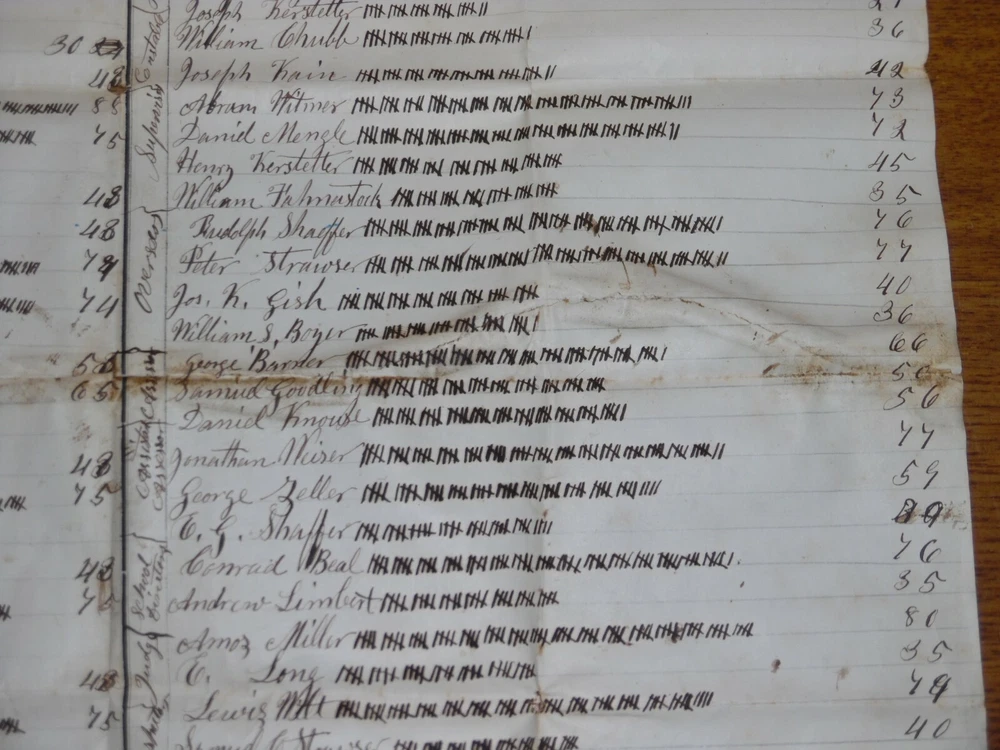 Joseph Kerstetter 27
30 William Chubb 36
48 Joseph Kain 42
88 Abram Witmer 73
75 Daniel Mengle 72
Henry Kerstetter 45
48 William Fahnestock 35
48 Rudolph Shaffer 76
79 Peter Strawser 77
74 Jos. K. Gish 40
William S. Boyer 36
George Barner 66
65 Samuel Goodling 50
Daniel Knouse 56
48 Jonathan Weiser 77
75 George Zeller 59
E. G. Shaffer
48 Conrad Beal 76
75 Andrew Limbert 35
Amos Miller 80
48 E. Long 35
75 Lewis Witt 79
Samuel Strawser 40
Supervisor
Overseer
School Directors
Judge